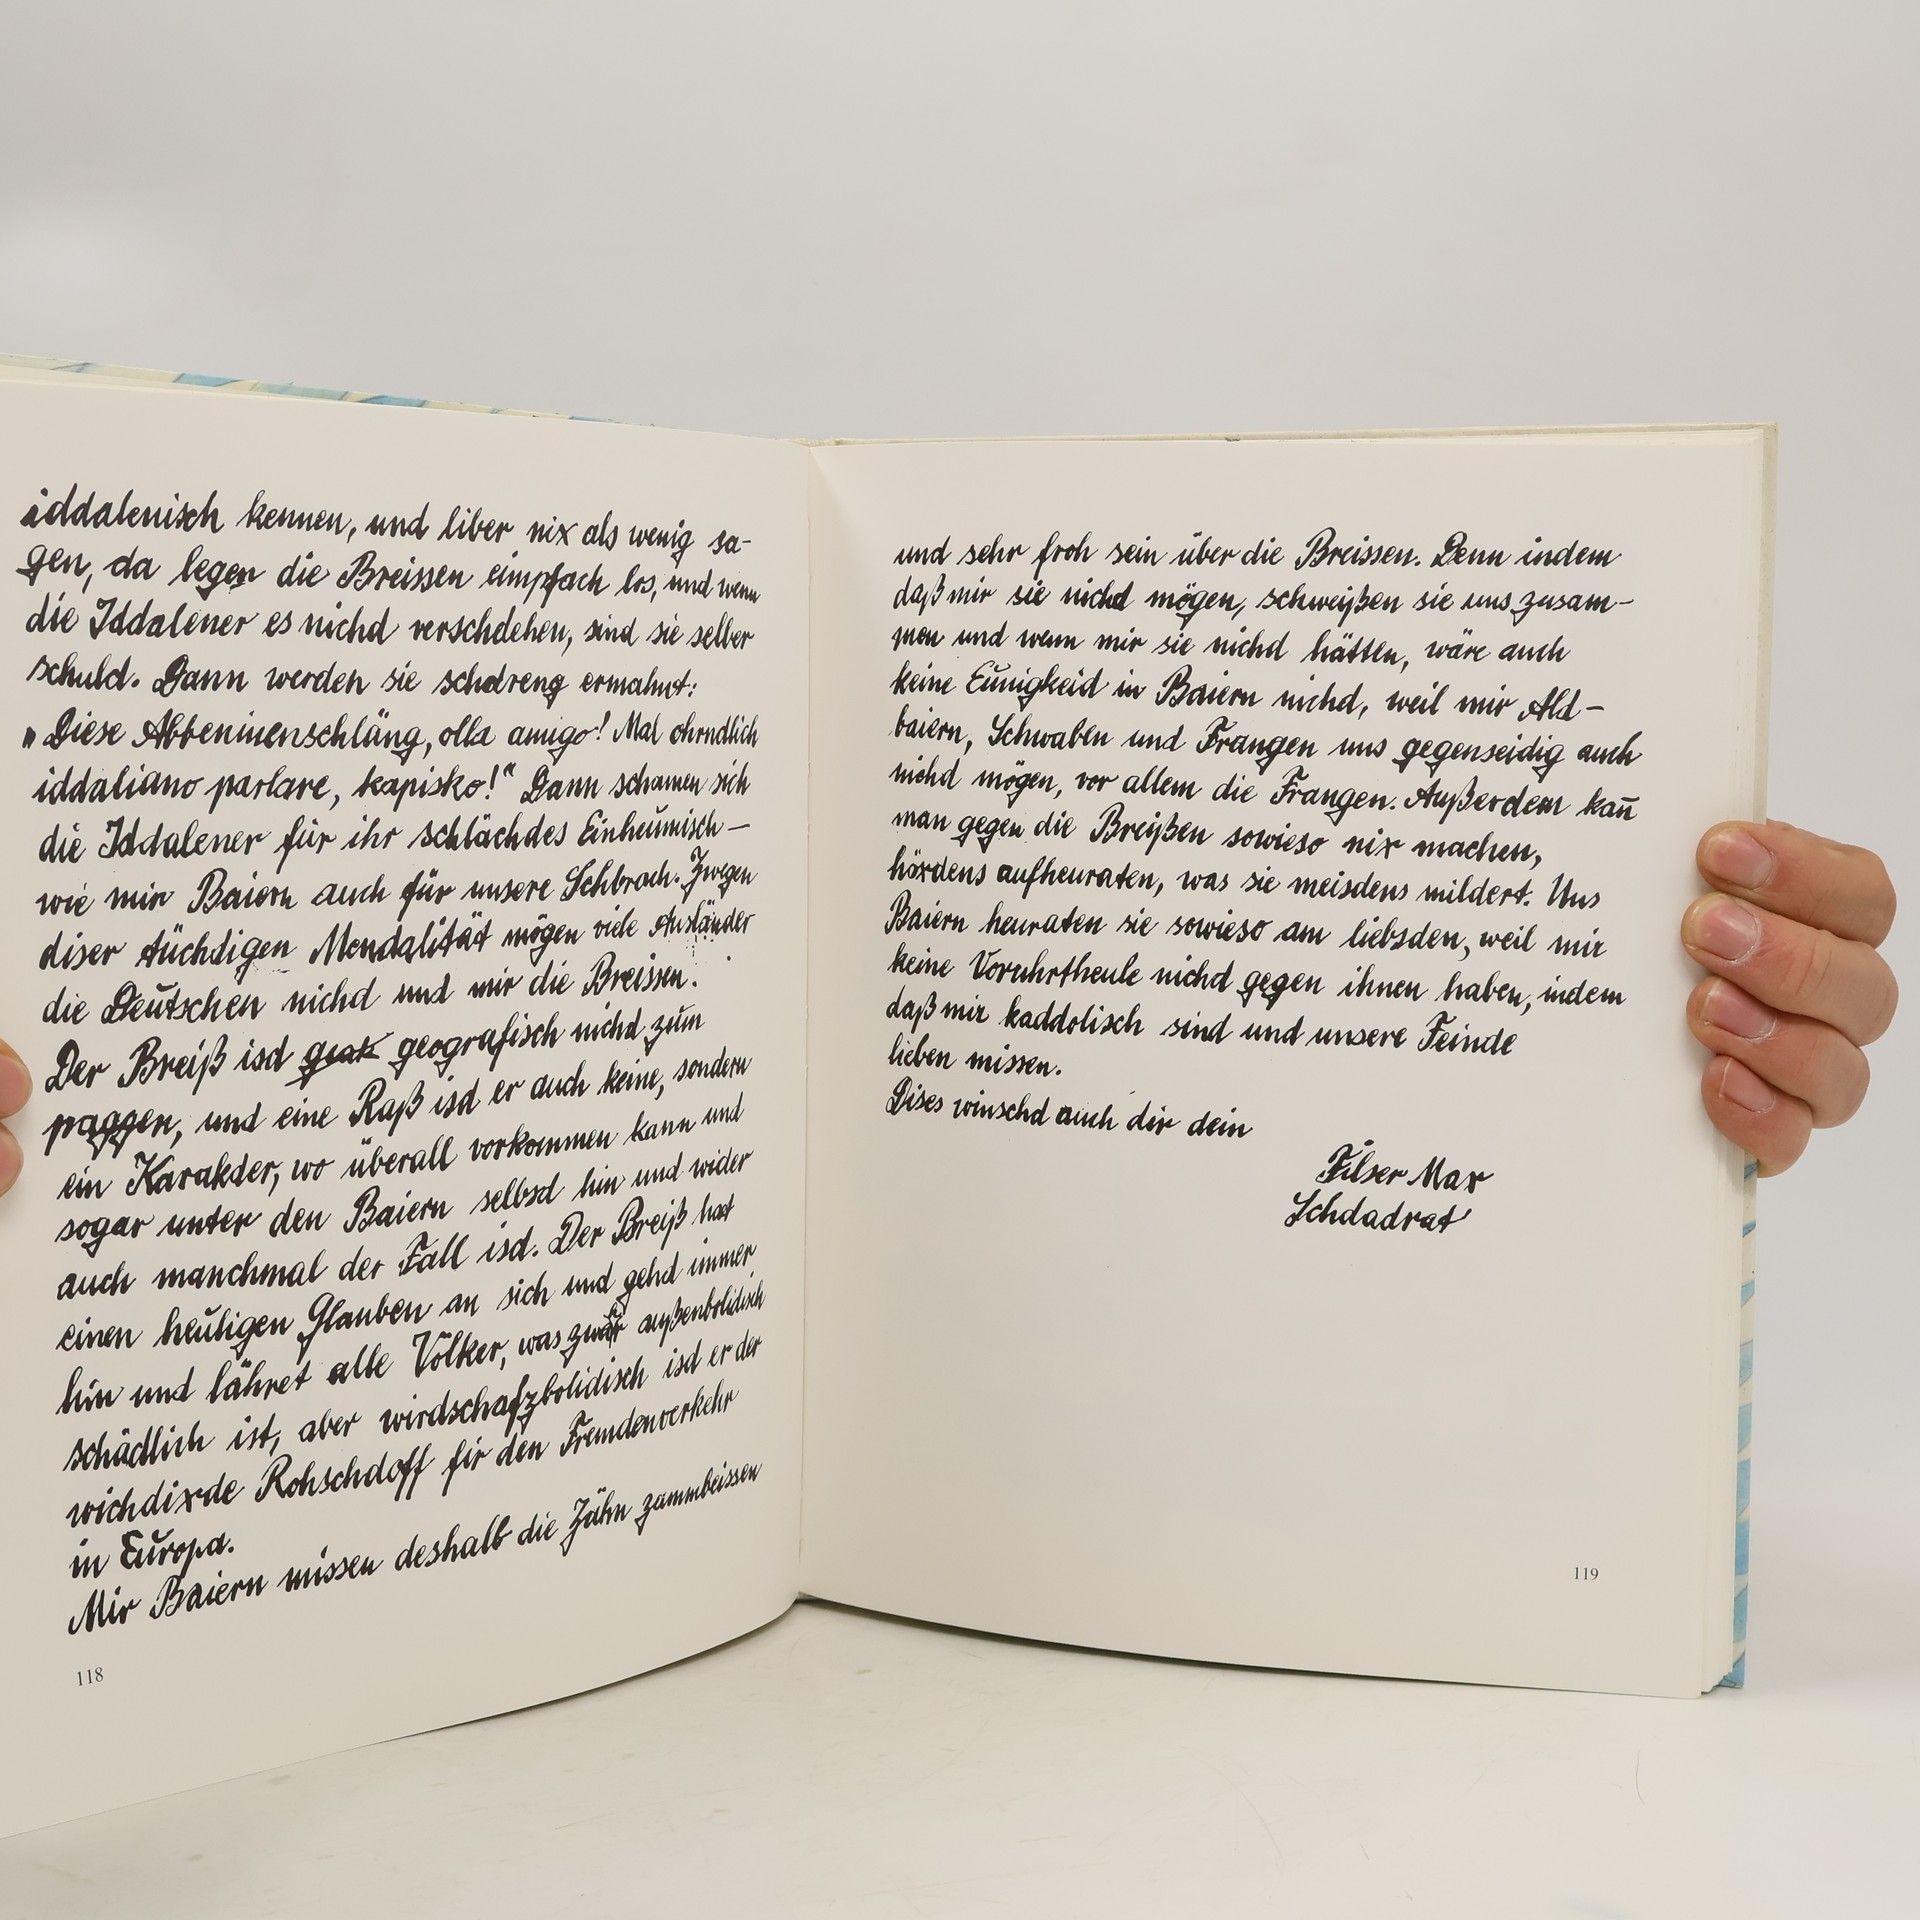 iddalenisch kennen, und liber nix als wenig sa-
gen, da legen die Breissen eimpfach los, und wenn
die Iddalener es nichd verschdehen, sind sie selber
schuld. Dann werden sie schdreng ermahnt:
„Diese Abbeninenschläng, olla amigo! Mal ohrndlich
iddaliano parlare, kapisko!" Dann schamen sich
die Iddalener für ihr schlächdes Einheumisch –
wie mir Baiern auch für unsere Schbrach. Zwegen
diser tüchdigen Mendalität mögen viele Ausländer
die Deutschen nichd und mir die Breissen.
Der Breiß isd geok geografisch nichd zum
paggen, und eine Raß isd er auch keine, sondern
ein Karakder, wo überall vorkommen kann und
sogar unter den Baiern selbsd hin und wider
auch manchmal der Fall isd. Der Breiß hat
einen heuligen Glauben an sich und gehd immer
hin und lähret alle Völker, was zwar außenbolidisch
schädlich ist, aber wirdschafzbolidisch isd er der
wichdixde Rohschdoff fir den Fremdenverkehr
in Europa.
Mir Baiern missen deshalb die Zähn zammbeissen
118
und sehr froh sein über die Breissen. Denn indem
daß mir sie nichd mögen, schweißen sie uns zusam-
men und wenn mir sie nichd hätten, wäre auch
keine Eunigkeid in Baiern nichd, weil mir Ald-
baiern, Schwaben und Frangen uns gegenseidig auch
nichd mögen, vor allem die Frangen. Außerdem kan̄
man gegen die Breißen sowieso nix machen,
höxdens aufheuraten, was sie meisdens mildert. Uns
Baiern heuraten sie sowieso am liebsden, weil mir
keine Voruhrtheule nichd gegen ihnen haben, indem
daß mir kaddolisch sind und unsere Feinde
lieben missen.
Dises winschd auch dir dein
Filser Max
Schdadrat
119